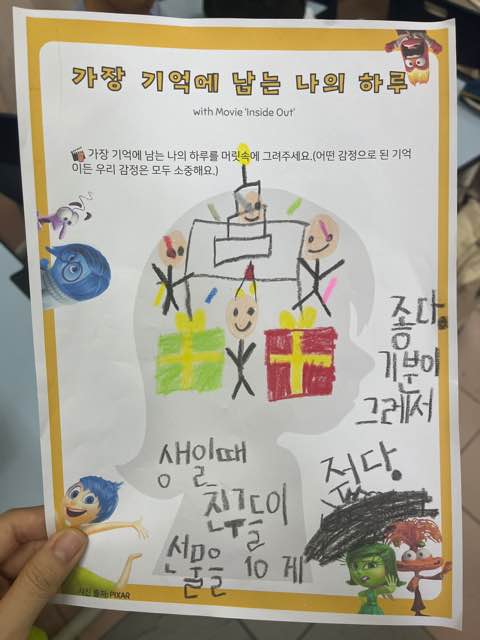 가장 기억에 남는 나의 하루
with Movie 'Inside Out'
가장 기억에 남는 나의 하루를 머릿속에 그려주세요.(어떤 감정으로 된 기억
이든 우리 감정은 모두 소중해요.)
생일때
친구들이
선물을 10 게
줬다.
그레서
기분이
좋다.
사진 출처: PIXAR